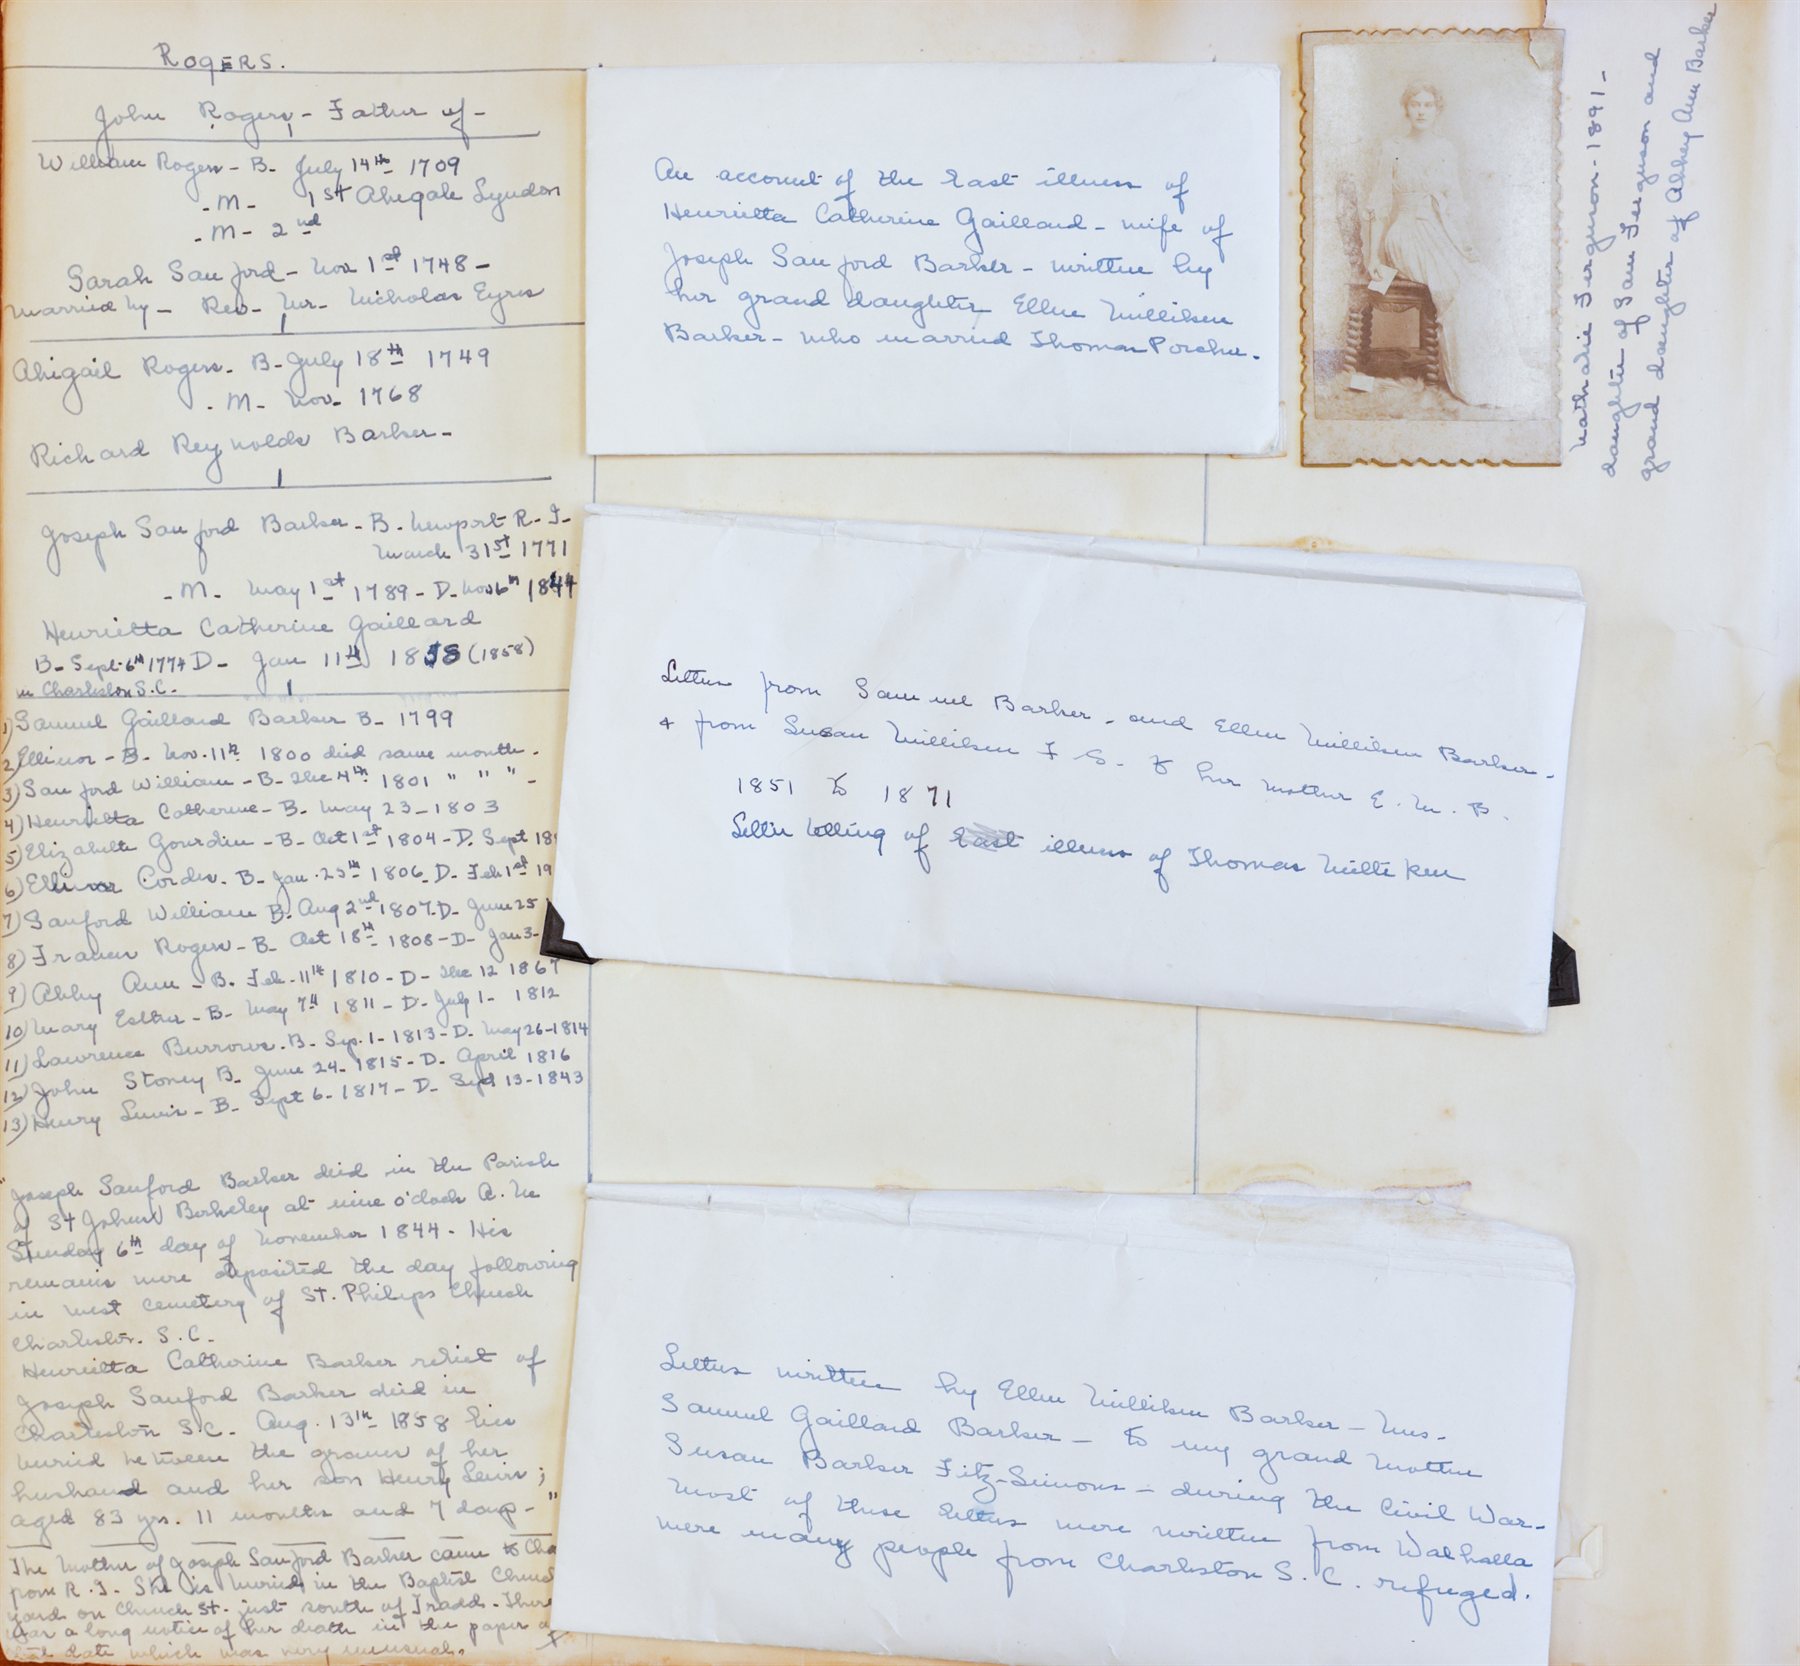 ROGERS.
John Rogers - Father of -
William Rogers - B. July 14th 1709
- M - 1st Abigale Lyndon
- M - 2nd
Sarah Sanford - Nov 1st 1748 -
Married by - Rev - Mr - Nicholas Eyres
Abigail Rogers - B - July 18th 1749
- M - Nov - 1768
Richard Reynolds Barker -
Joseph Sanford Barker - B. Newport R. I -
March 31st 1771
- M - May 1st 1789 - D - Nov 6th 1844
Henrietta Catherine Gaillard
B - Sept. 6th 1774 D - Jan 11th 1858 (1858)
in Charleston S.C.
1) Samuel Gaillard Barker B - 1799
2) Ellinor - B - Nov. 11th 1800 died same month -
3) Sanford William - B - Dec 4th 1801 " " " -
4) Henrietta Catherine - B - May 23 - 1803
5) Elizabeth Gourdin - B - Oct 1st 1804 - D. Sept 18
6) Ellinor Cordes. B - Jan. 25th 1806 - D - Feb 1st 19
7) Sanford William B - Aug 2nd 1807 - D - June 25
8) Francis Rogers - B - Oct 18th 1808 - D - Jan 3 -
9) Abby Ann - B. Feb. 11th 1810 - D - Dec 12 1867
10) Mary Esther - B - May 7th 1811 - D - July 1 - 1812
11) Lawrence Burrows - B - Sep. 1 - 1813 - D - May 26 - 1814
12) John Stoney B - June 24 - 1815 - D - April 1816
13) Henry Lewis - B - Sept 6 - 1817 - D - Sept 13 - 1843
"Joseph Sanford Barker died in the Parish
of St Johns Berkeley at nine o'clock A. M
Sunday 6th day of November 1844 - His
remains were deposited the day following
in west cemetery of St. Philips Church
Charleston - S.C. -
Henrietta Catherine Barker relict of
Joseph Sanford Barker died in
Charleston S.C. Aug. 13th 1858 lies
buried between the graves of her
husband and her son Henry Lewis;
aged 83 yrs. 11 months and 7 days - "
The mother of Joseph Sanford Barker came to Cha
from R. I - She is buried in the Baptist Church
yard on Church St - just south of Tradd - There
was a long notice of her death in the paper
date which was very unusual.
An account of the last illness of
Henrietta Catherine Gaillard - wife of
Joseph Sanford Barker - written by
her grand daughter Ellen Milliken
Barker - who married Thomas Porcher.
Nathalie Ferguson - 1891 -
daughter of Sam Ferguson and
grand daughter of Abbey Ann Barker
Letters from Samuel Barker - and Ellen Milliken Barker -
+ from Susan Milliken F S - to her mother E. M. B.
1851 to 1871
Letter telling of last illness of Thomas Milliken
Letters written by Ellen Milliken Barker - Mrs -
Samuel Gaillard Barker - to my grand mother
Susan Barker Fitz-Simons - during the Civil War -
Most of these letters were written from Walhalla
were many people from Charleston S. C. refuged.